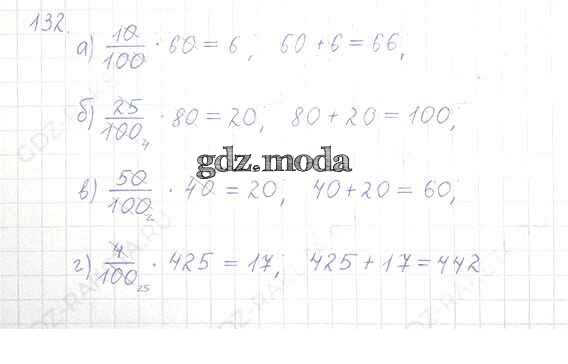 132.
а) 10/100 · 60 = 6; 60 + 6 = 66,
б) 25/100 4 · 80 = 20; 80 + 20 = 100;
gdz.moda
в) 50/100 2 · 40 = 20; 40 + 20 = 60;
г) 4/100 25 · 425 = 17; 425 + 17 = 442